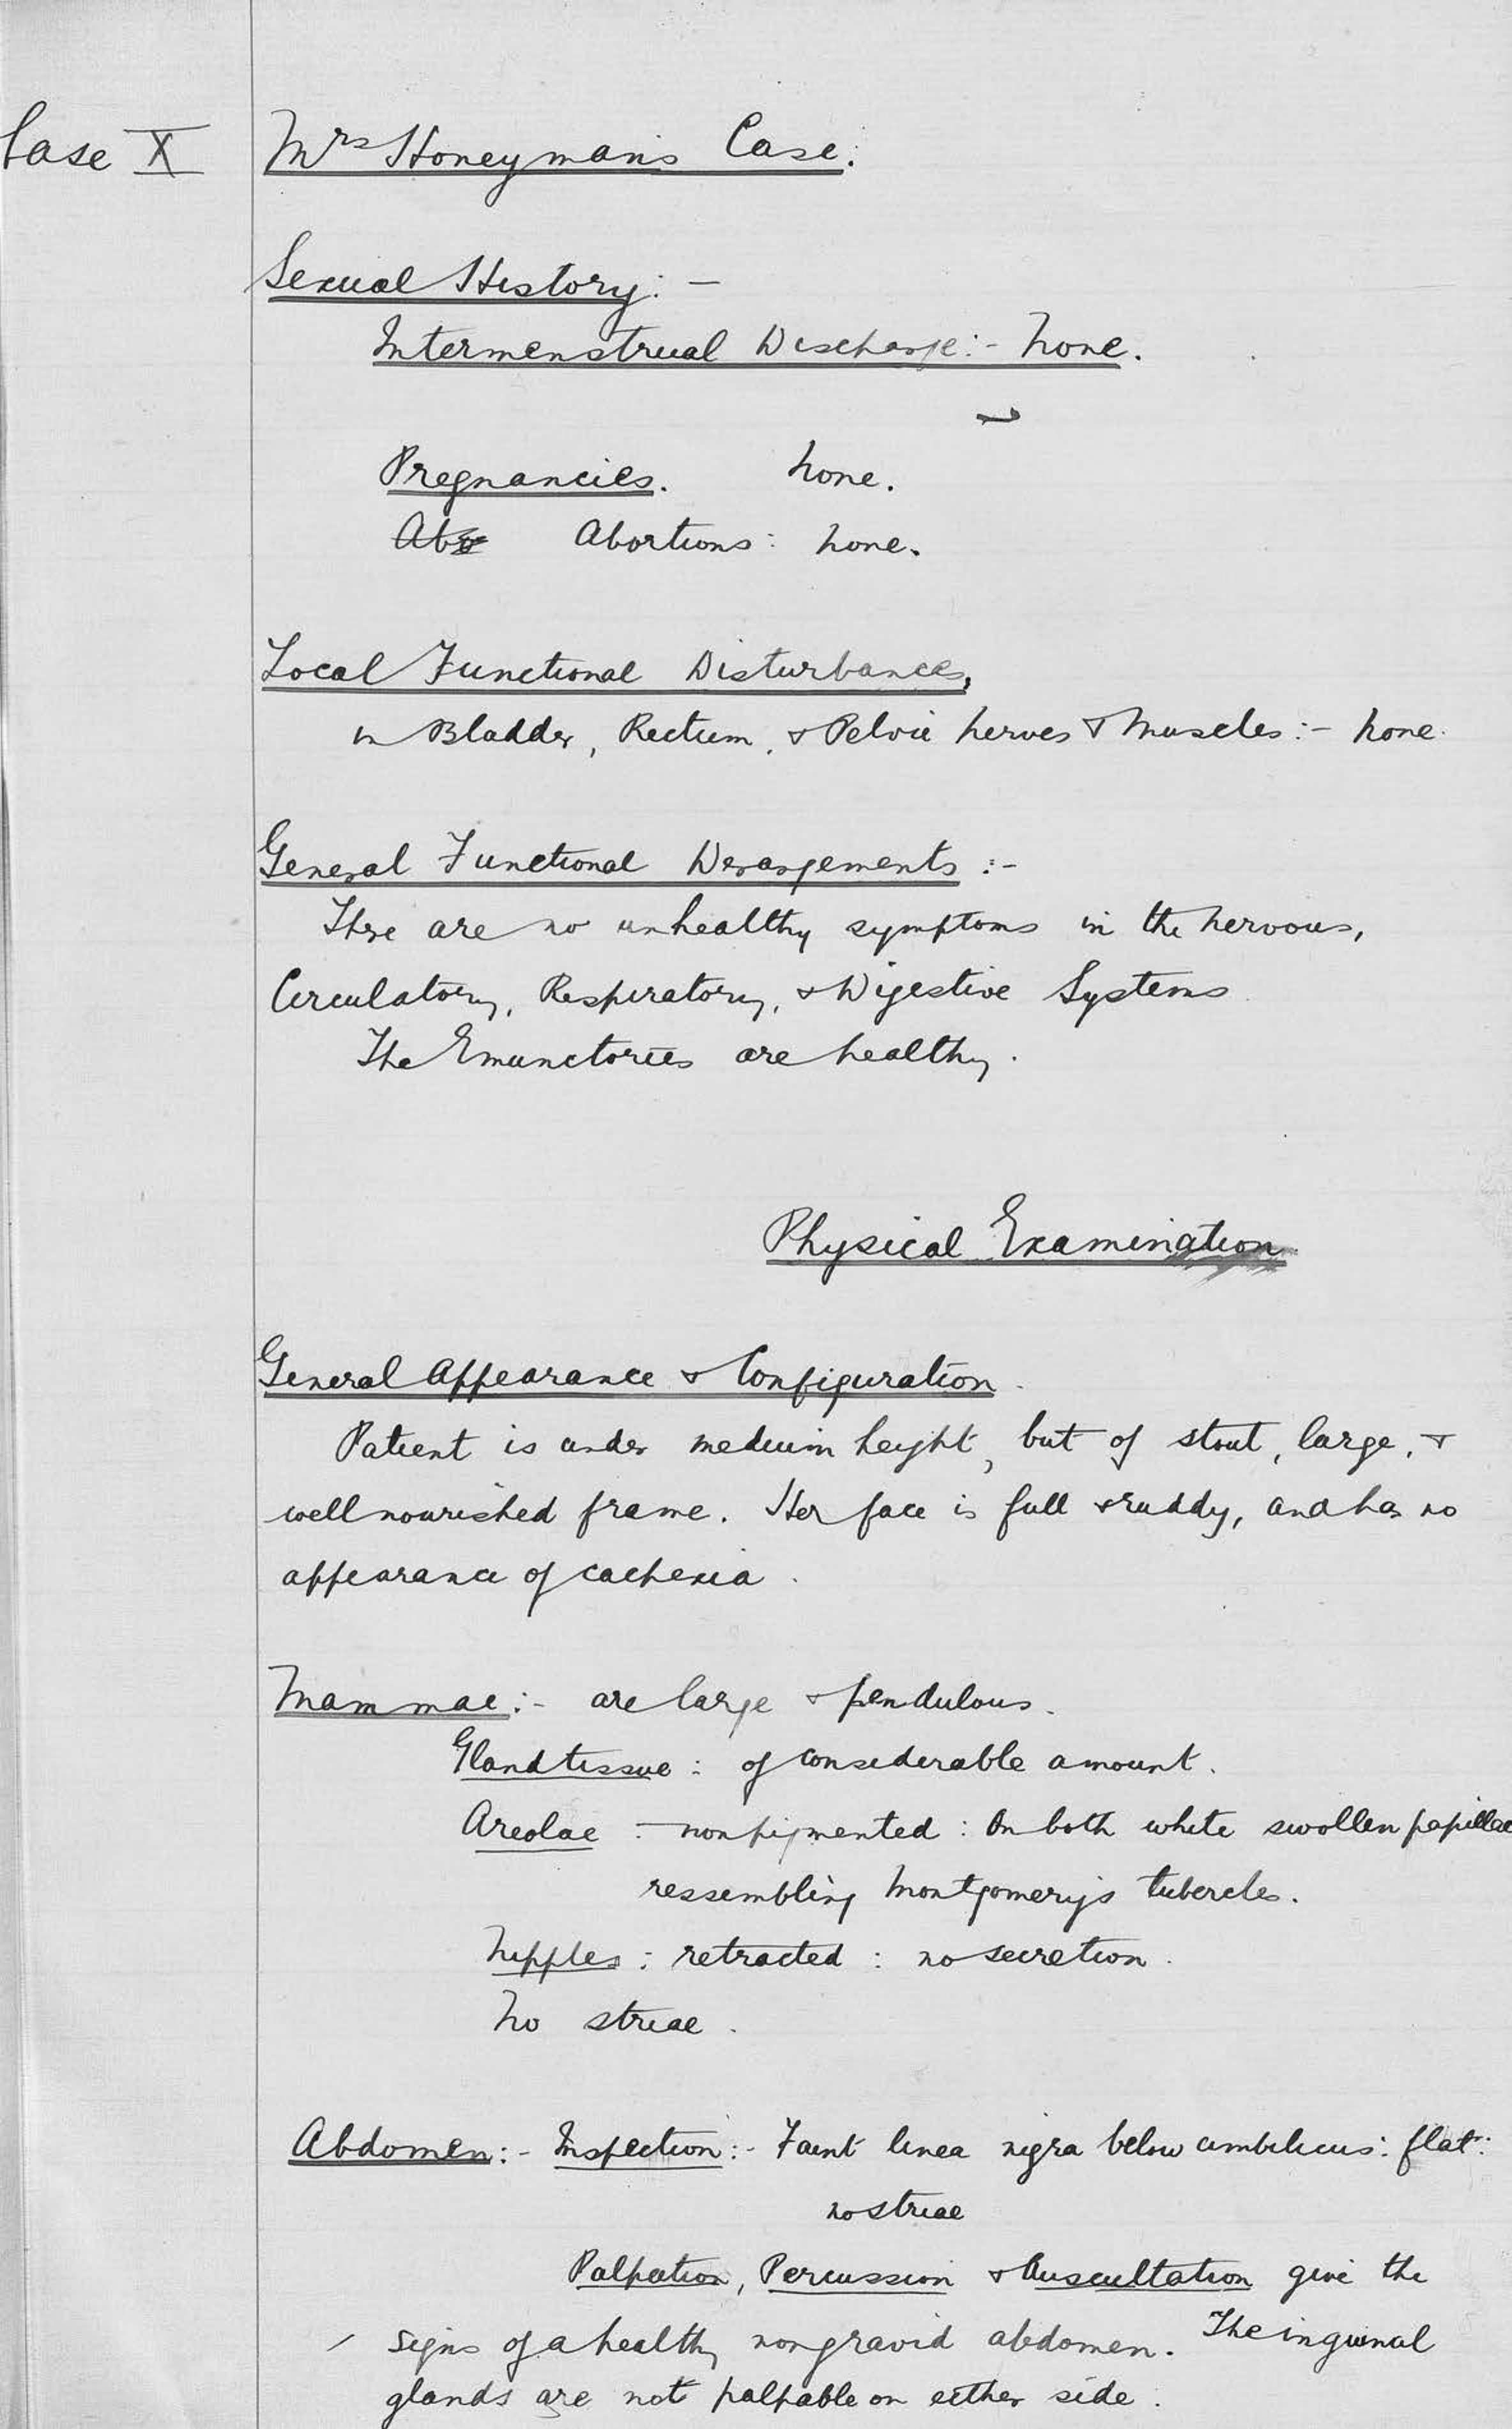 Case X
Mrs Honeyman's Case:
Sexual History: -
Intermenstrual Discharge: - None.
Pregnancies. None.
Abo Abortions: None.
Local Functional Disturbances,
in Bladder, Rectum, & Pelvic Nerves & Muscles: - None.
General Functional Derangements :-
There are no unhealthy symptoms in the Nervous,
Circulatory, Respiratory, & Digestive Systems
The Emunctories are healthy.
Physical Examination
General Appearance & Configuration.
Patient is under medium height, but of stout, large, &
well nourished frame. Her face is full & ruddy, and has no
appearance of cachexia.
Mammae: - are large & pendulous.
Gland tissue: of considerable amount.
Areolae :- non pigmented: On both white swollen papillae
ressembling Montgomery's tubercles.
Nipples: retracted: no secretion.
No striae.
Abdomen: - Inspection: - Faint linea nigra below umbilicus: flat:
no striae
Palpation, Percussion & Auscultation give the
signs of a healthy non gravid abdomen. The inguinal
glands are not palpable on either side.